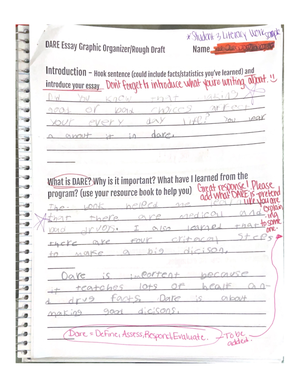 * Student 3 Literacy Work Sample
DARE Essay Graphic Organizer/Rough Draft Name
Introduction – Hook sentence (could include facts/statistics you've learned) and
introduce your essay Don't forget to introduce what you're writing about. !!
Did you know that
good or bad choices affect
your every day life? You hear
a about it in dare.
What is DARE? Why is it important? What have I learned from the
program? (use your resource book to help you)
Great response! Please
add what DARE is
pretend
like you are
explaining
to some
one.
The book helped me
that there are medical and
I also learned that
there are four criteocal Steps
to make a big dicison.
Dare is importent because
it teaches lots of healf an
d drug facts. Dare is about
making good dicisons.
Dare = Define, Assess, Respond, Evaluate.
To be
added.